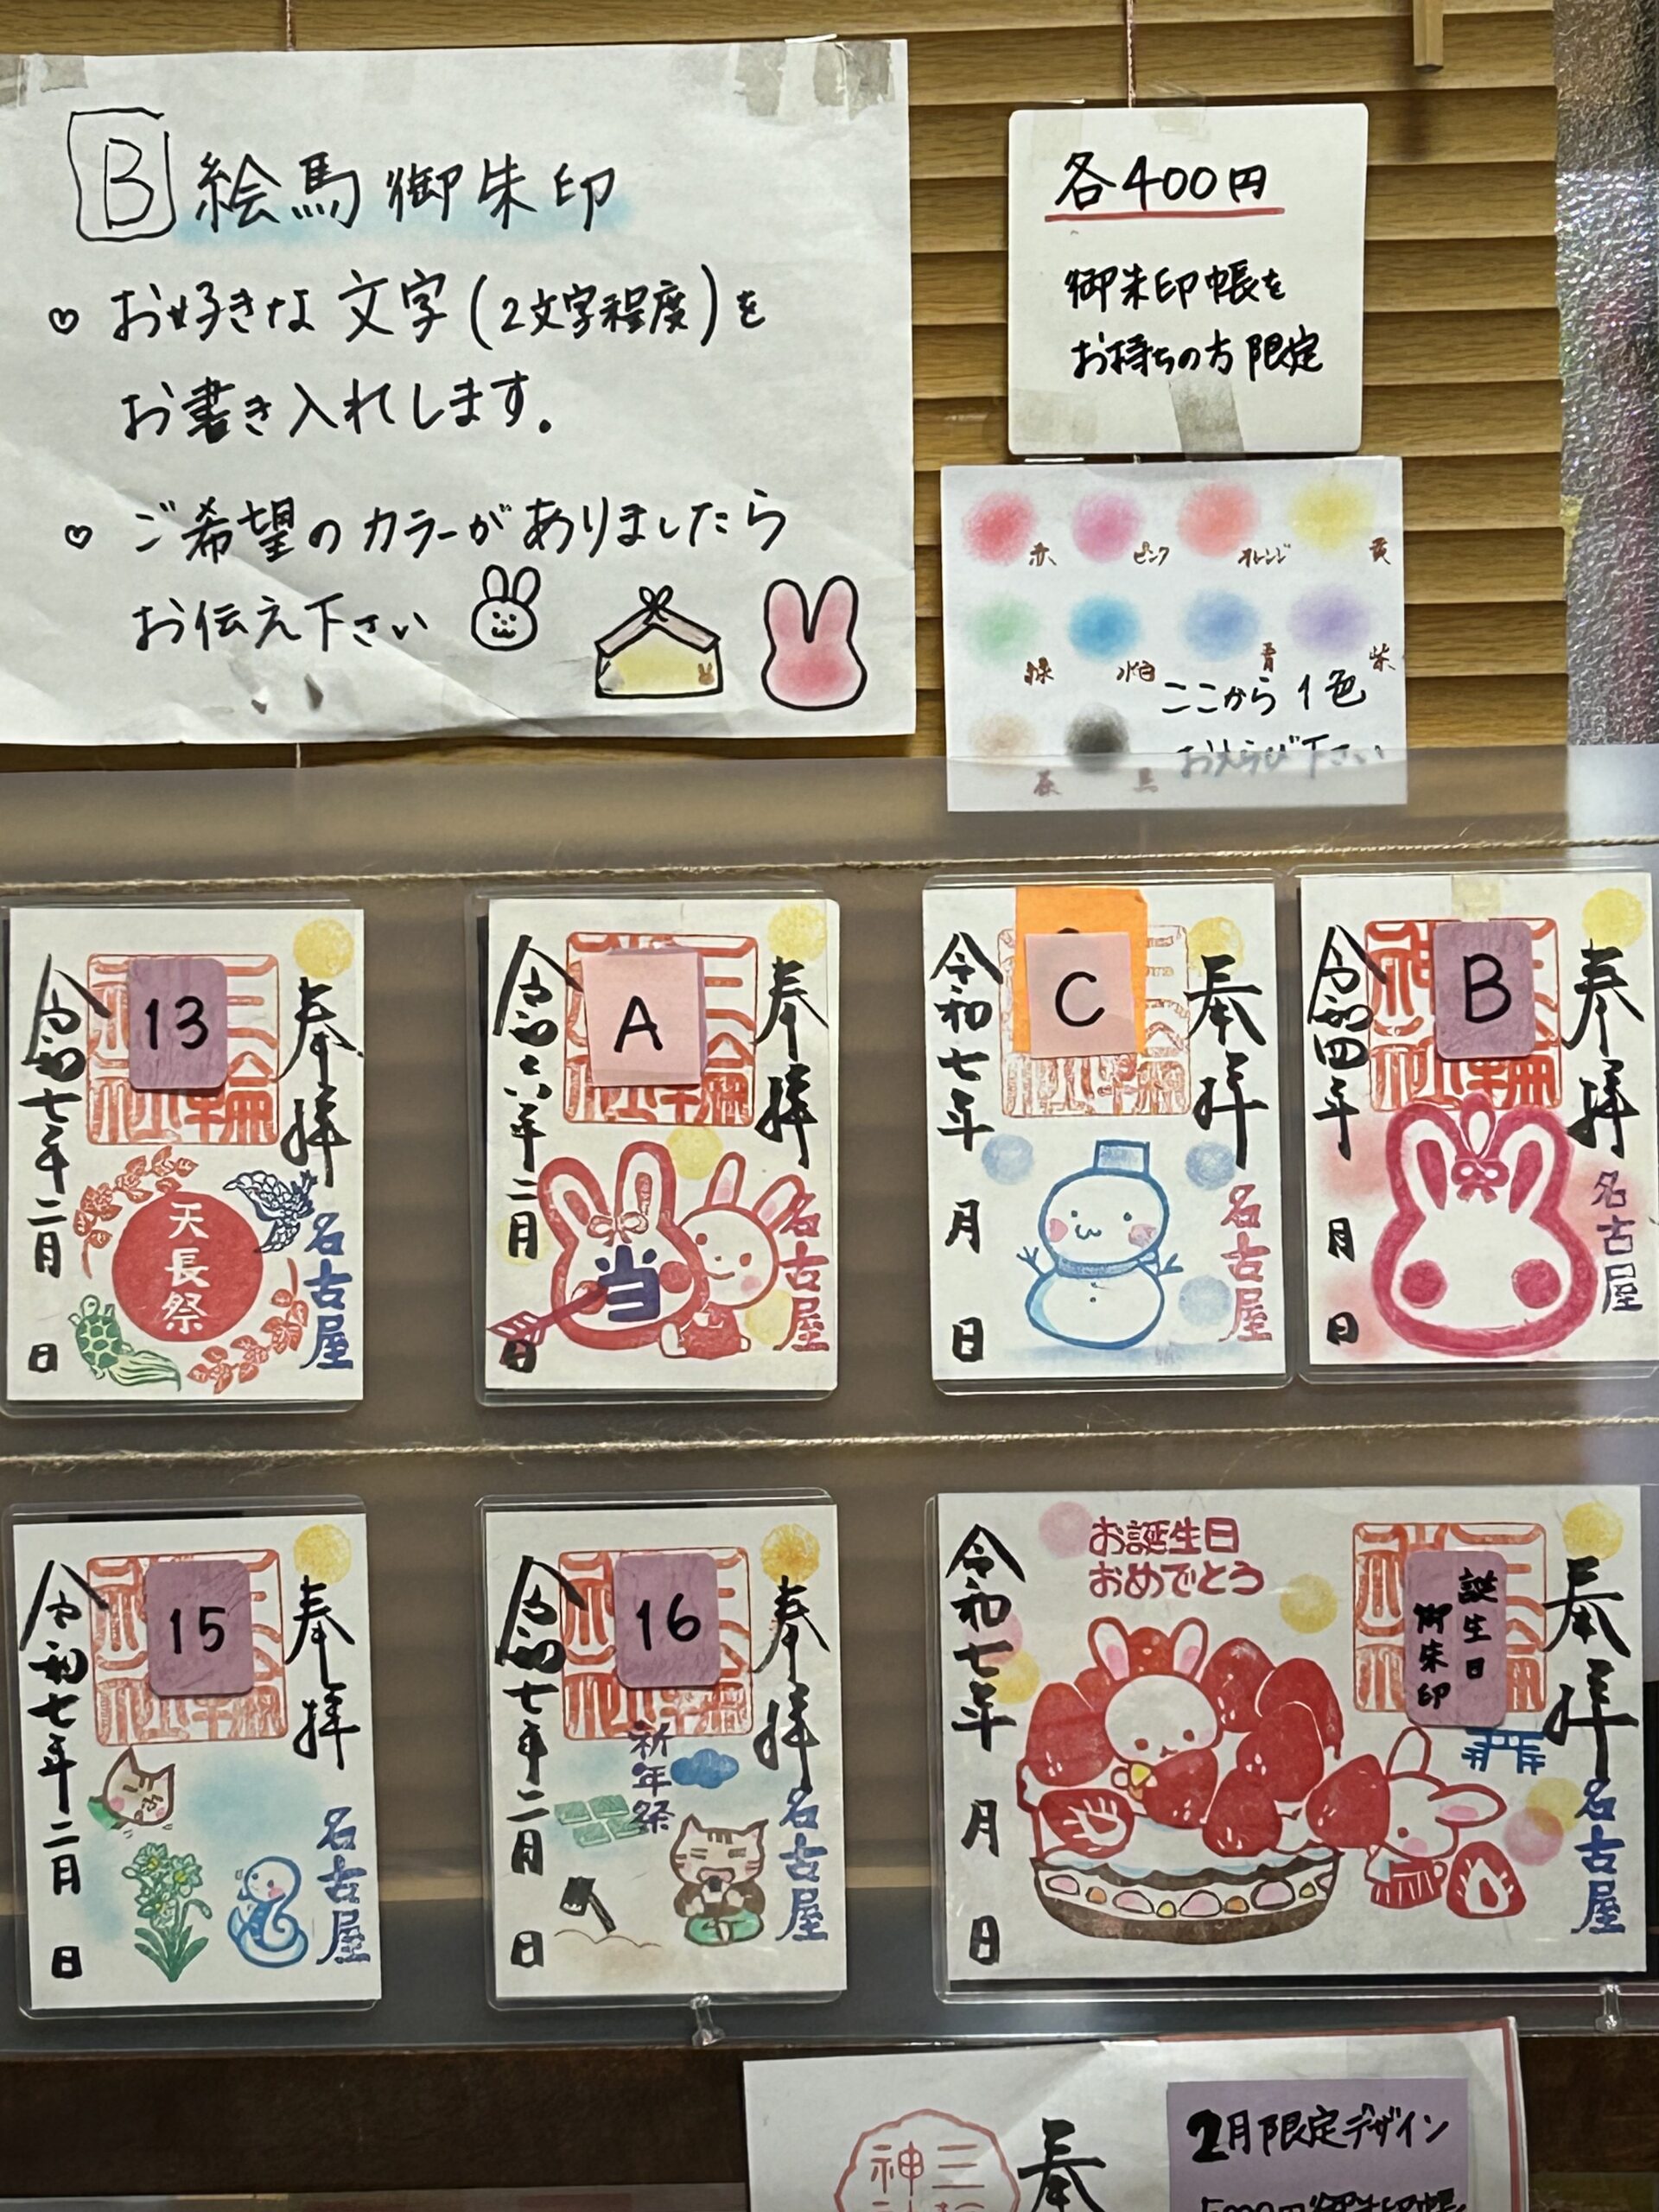 B 絵馬御朱印
♡ お好きな文字(2文字程度)を
お書き入れします.
♡ ご希望のカラーがありましたら
お伝え下さい
各400円
御朱印帳を
お持ちの方限定
赤 ピンク オレンジ 黄
緑 水色 青 紫
茶 黒
ここから1色
おえらび下さい
13
奉拝
名古屋
天長祭
令和七年二月 日
A
奉拝
名古屋
当
令和六年二月 日
C
奉拝
名古屋
令和七年 月 日
B
奉拝
名古屋
令和四年 月 日
15
奉拝
名古屋
令和七年二月 日
16
奉拝
名古屋
祈年祭
令和七年二月 日
お誕生日
おめでとう
誕生日
御朱印
奉拝
名古屋
令和七年 月 日
奉
三
神
2月限定デザイン